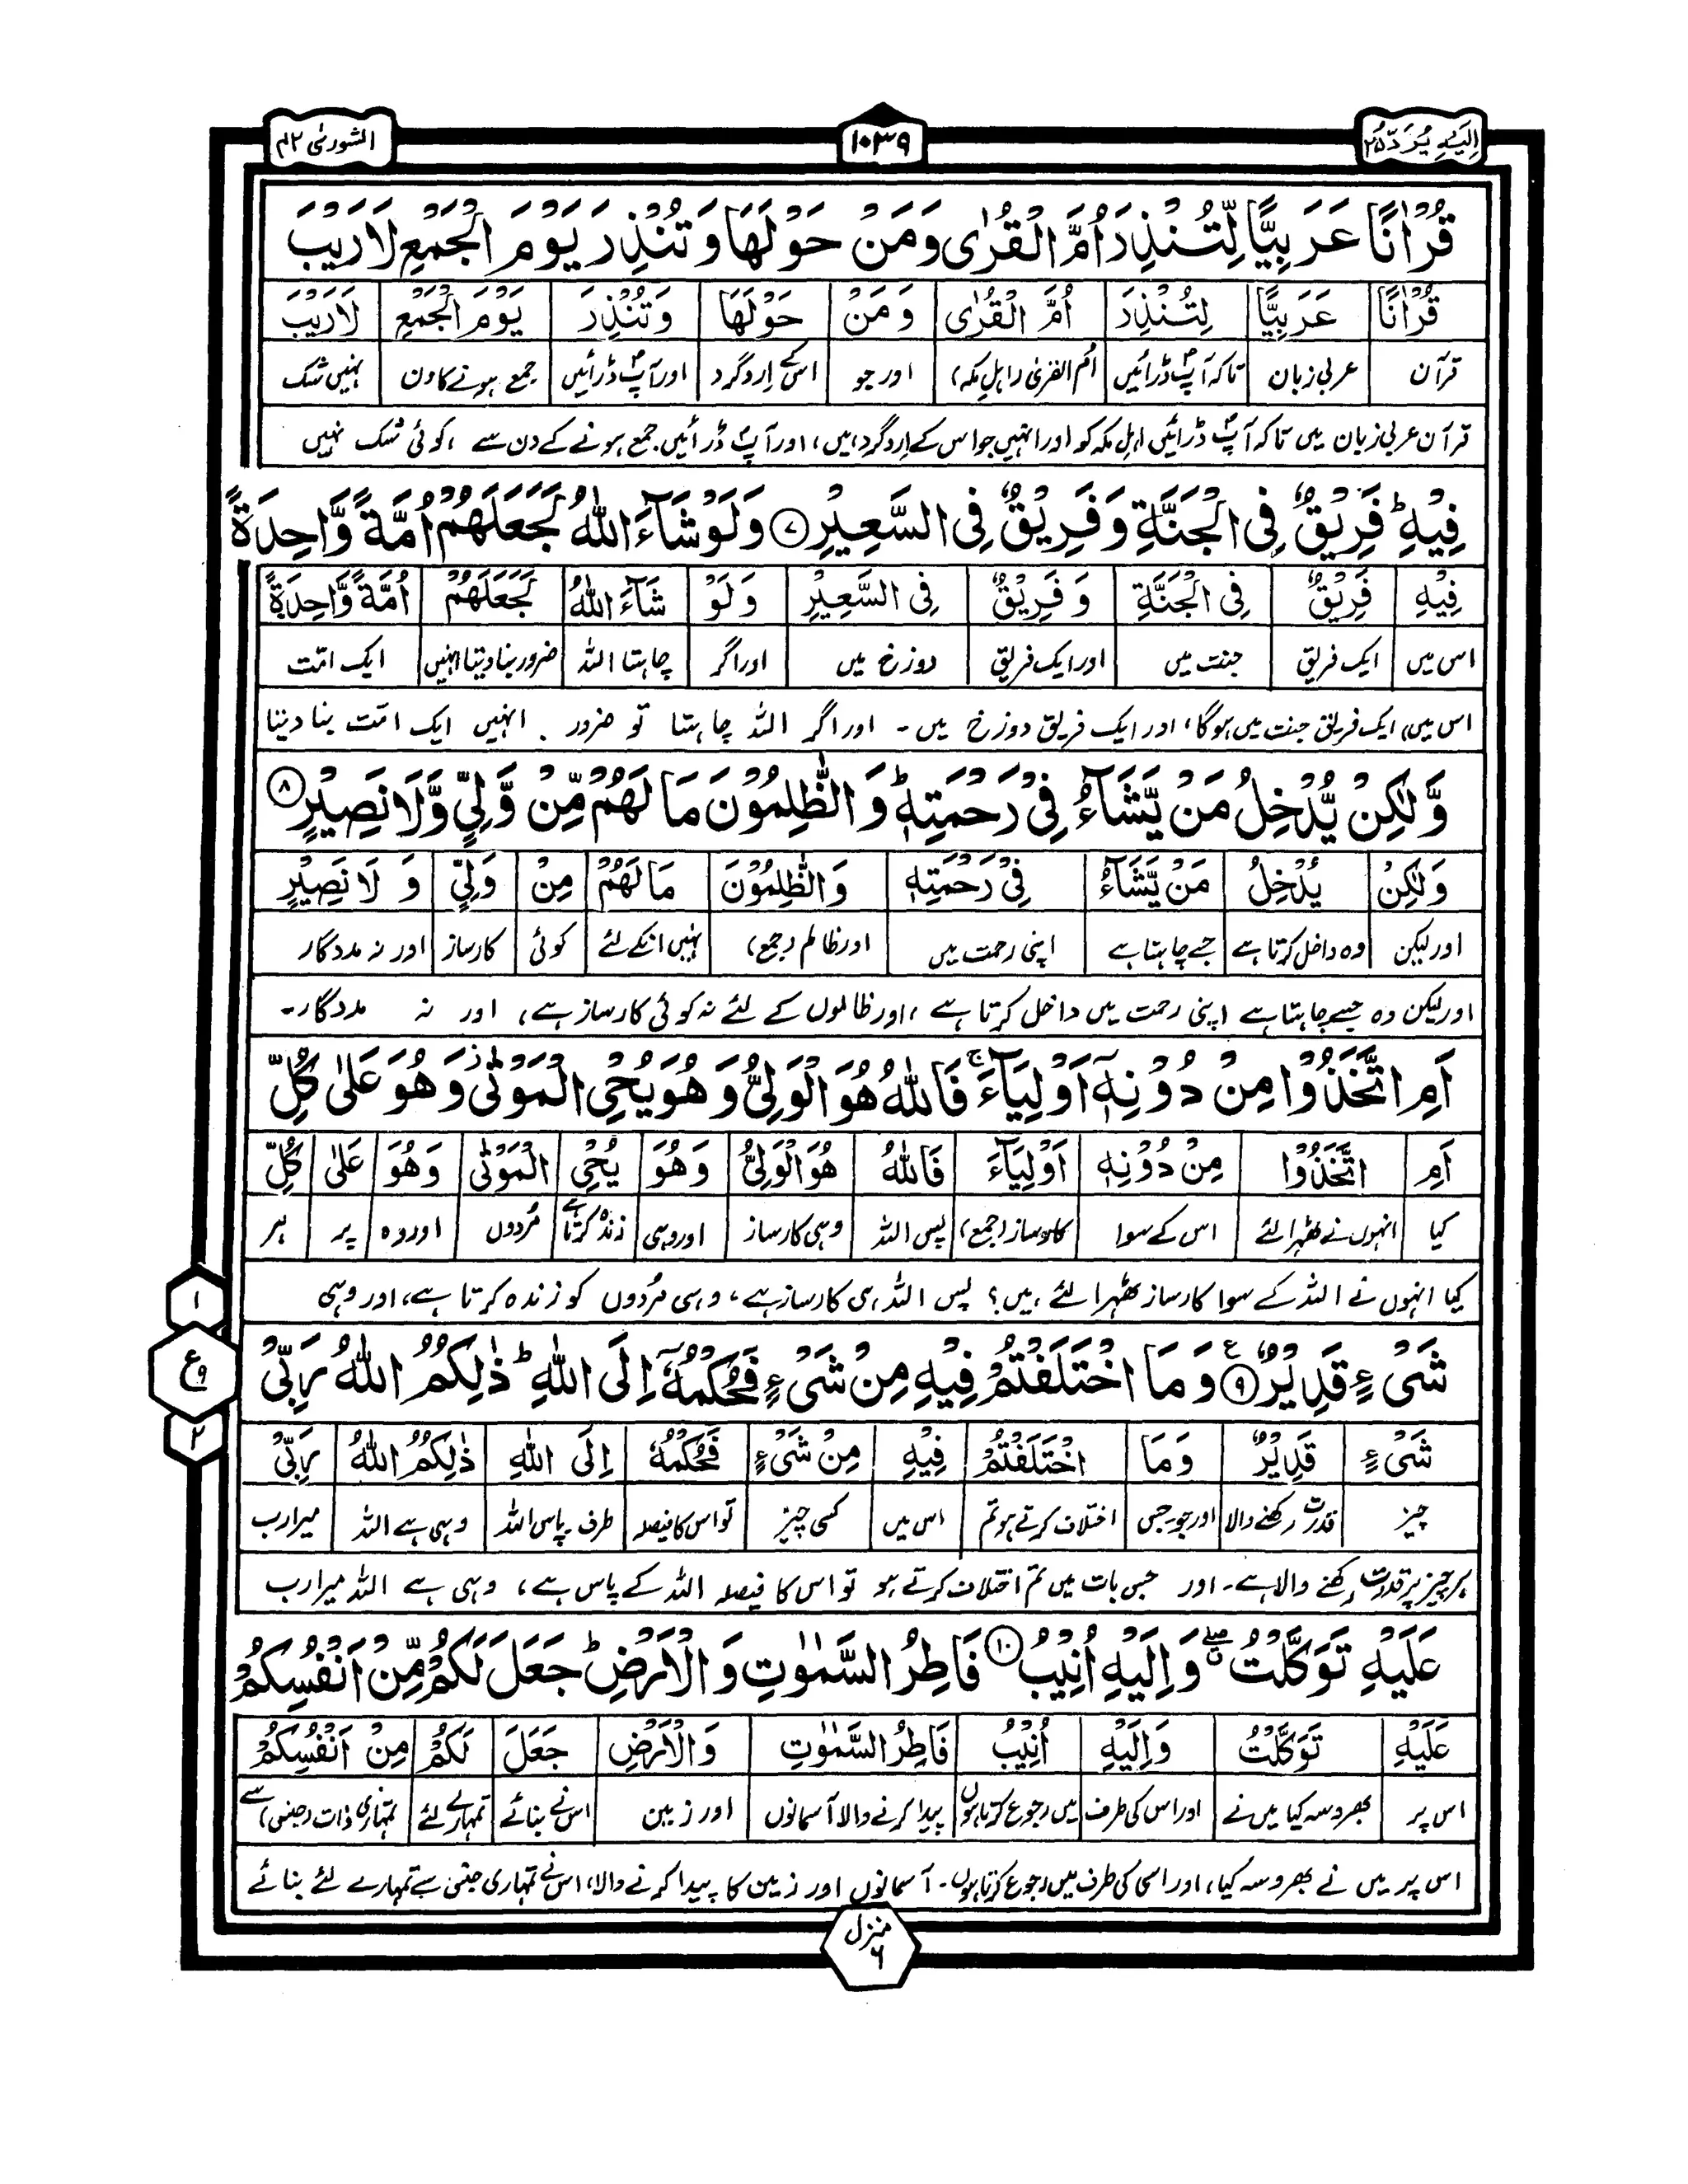 اِلَيْهِ يُرَدُّ ٢٥
١٠٣٩
الشورىٰ ٤٢
قُرْاٰنًا عَرَبِيًّا لِّتُنْذِرَ اُمَّ الْقُرٰى وَمَنْ حَوْلَهَا وَتُنْذِرَ يَوْمَ الْجَمْعِ لَا رَيْبَ
قُرْاٰنًا عَرَبِيًّا لِتُنْذِرَ اُمَّ الْقُرٰى وَمَنْ حَوْلَهَا وَتُنْذِرَ يَوْمَ الْجَمْعِ لَا رَيْبَ
قرآن عربی زبان تاکہ آپؐ ڈرائیں اُم القریٰ (اہلِ مکہ) اور جو اسکے اِردگرد اور آپؐ ڈرائیں جمع ہونے کا دن نہیں شک
قرآن عربی زبان میں تاکہ آپؐ ڈرائیں اہلِ مکہ کو اور انہیں جو اس کے اِردگرد ہیں، اور آپؐ ڈرائیں جمع ہونے کے دن سے، کوئی شک نہیں
فِيْهِ ؕ فَرِيْقٌ فِى الْجَنَّةِ وَفَرِيْقٌ فِى السَّعِيْرِ ﴿٧﴾ وَلَوْ شَآءَ اللّٰهُ لَجَعَلَهُمْ اُمَّةً وَّاحِدَةً
فِيْهِ فَرِيْقٌ فِى الْجَنَّةِ وَ فَرِيْقٌ فِى السَّعِيْرِ وَ لَوْ شَآءَ اللّٰهُ لَجَعَلَهُمْ اُمَّةً وَّاحِدَةً
اس میں ایک فریق جنت میں اور ایک فریق دوزخ میں اور اگر چاہتا اللہ ضرور بنا دیتا انہیں ایک امّت
اس میں، ایک فریق جنت میں ہوگا، اور ایک فریق دوزخ میں۔ اور اگر اللہ چاہتا تو ضرور انہیں ایک امّت بنا دیتا
وَّلٰكِنْ يُّدْخِلُ مَنْ يَّشَآءُ فِىْ رَحْمَتِهٖ ؕ وَالظّٰلِمُوْنَ مَا لَهُمْ مِّنْ وَّلِيٍّ وَّلَا نَصِيْرٍ ﴿٨﴾
وَلٰكِنْ يُدْخِلُ مَنْ يَّشَآءُ فِىْ رَحْمَتِهٖ وَالظّٰلِمُوْنَ مَا لَهُمْ مِنْ وَلِيٍّ وَ لَا نَصِيْرٍ
اور لیکن وہ داخل کرتا ہے جسے چاہتا ہے اپنی رحمت میں اور ظالم (جمع) نہیں انکے لئے کوئی کارساز اور نہ مددگار
اور لیکن وہ جسے چاہتا ہے اپنی رحمت میں داخل کرتا ہے، اور ظالموں کے لئے نہ کوئی کارساز ہے، اور نہ مددگار۔
اَمِ اتَّخَذُوْا مِنْ دُوْنِهٖۤ اَوْلِيَآءَ ۚ فَاللّٰهُ هُوَ الْوَلِىُّ وَهُوَ يُحْىِ الْمَوْتٰى ؗ وَهُوَ عَلٰى كُلِّ
اَمِ اتَّخَذُوْا مِنْ دُوْنِهٖ اَوْلِيَآءَ فَاللّٰهُ هُوَ الْوَلِىُّ وَهُوَ يُحْىِ الْمَوْتٰى وَهُوَ عَلٰى كُلِّ
کیا انہوں نے ٹھہرا لئے اس کے سوا کارساز (جمع) پس اللہ وہی کارساز اور وہی زندہ کرتا ہے مُردوں اور وہ پر ہر
کیا انہوں نے اللہ کے سوا کارساز ٹھہرا لئے ہیں؟ پس اللہ ہی کارساز ہے، وہی مُردوں کو زندہ کرتا ہے، اور وہی
١
ع ٩
٢
شَىْءٍ قَدِيْرٌ ﴿٩﴾ وَمَا اخْتَلَفْتُمْ فِيْهِ مِنْ شَىْءٍ فَحُكْمُهٗۤ اِلَى اللّٰهِ ؕ ذٰلِكُمُ اللّٰهُ رَبِّىْ
شَىْءٍ قَدِيْرٌ وَمَا اخْتَلَفْتُمْ فِيْهِ مِنْ شَىْءٍ فَحُكْمُهٗ اِلَى اللّٰهِ ذٰلِكُمُ اللّٰهُ رَبِّىْ
چیز قدرت رکھنے والا اور جو۔جس اختلاف کرتے ہو تم اس میں کسی چیز تو اس کا فیصلہ طرف پاس اللہ وہی ہے اللہ میرا رب
ہر چیز پر قدرت رکھنے والا ہے۔ اور جس بات میں تم اختلاف کرتے ہو تو اس کا فیصلہ اللہ کے پاس ہے، وہی ہے اللہ میرا رب
عَلَيْهِ تَوَكَّلْتُ ۖ وَاِلَيْهِ اُنِيْبُ ﴿١٠﴾ فَاطِرُ السَّمٰوٰتِ وَالْاَرْضِ ؕ جَعَلَ لَكُمْ مِّنْ اَنْفُسِكُمْ
عَلَيْهِ تَوَكَّلْتُ وَاِلَيْهِ اُنِيْبُ فَاطِرُ السَّمٰوٰتِ وَالْاَرْضِ جَعَلَ لَكُمْ مِنْ اَنْفُسِكُمْ
اس پر بھروسہ کیا میں نے اور اس کی طرف میں رجوع کرتا ہوں پیدا کرنے والا آسمانوں اور زمین اس نے بنائے تمہارے لئے تمہاری ذات (جنس) سے
اس پر میں نے بھروسہ کیا، اور اسی کی طرف میں رجوع کرتا ہوں۔ آسمانوں اور زمین کا پیدا کرنے والا، اس نے تمہاری جنس سے تمہارے لئے بنائے
منزل ٦